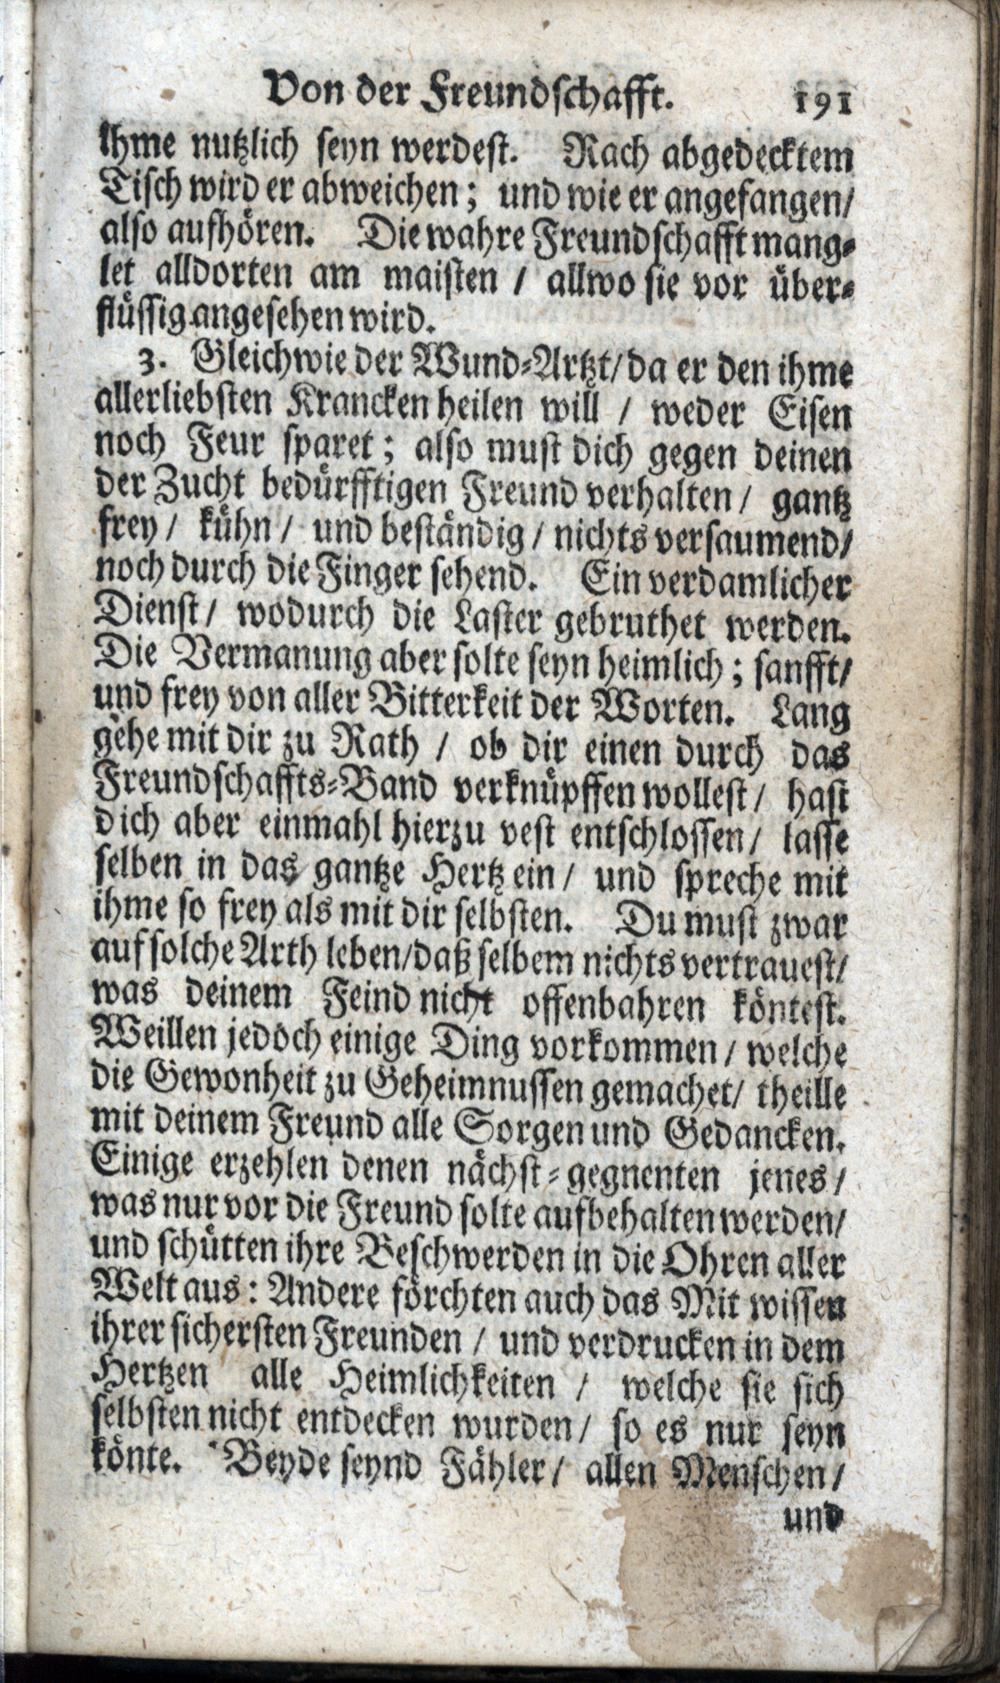 Von der Freundschafft. 191
Ihme nutzlich seyn werdest. Nach abgedecktem
Tisch wird er abweichen; und wie er angefangen/
also aufhören. Die wahre Freundschafft mang-
let alldorten am maisten / allwo sie vor über-
flüssig angesehen wird.
3. Gleichwie der Wund-Artzt/ da er den ihme
allerliebsten Krancken heilen will / weder Eisen
noch Feur sparet; also must dich gegen deinen
der Zucht bedürfftigen Freund verhalten/ gantz
frey/ kühn/ und beständig/ nichts versaumend/
noch durch die Finger sehend. Ein verdamlicher
Dienst/ wodurch die Laster gebruthet werden.
Die Vermanung aber solte seyn heimlich; sanfft/
und frey von aller Bitterkeit der Worten. Lang
gehe mit dir zu Rath / ob dir einen durch das
Freundschaffts-Band verknüpffen wollest/ hast
dich aber einmahl hierzu vest entschlossen/ lasse
selben in das gantze Hertz ein/ und spreche mit
ihme so frey als mit dir selbsten. Du must zwar
auf solche Arth leben/ daß selbem nichts vertrauest/
was deinem Feind nicht offenbahren köntest.
Weillen jedoch einige Ding vorkommen/ welche
die Gewonheit zu Geheimnussen gemachet/ theille
mit deinem Freund alle Sorgen und Gedancken.
Einige erzehlen denen nächst-gegnenten jenes/
was nur vor die Freund solte aufbehalten werden/
und schütten ihre Beschwerden in die Ohren aller
Welt aus: Andere förchten auch das Mit wissen
ihrer sichersten Freunden / und verdrucken in dem
Hertzen alle Heimlichkeiten / welche sie sich
selbsten nicht entdecken wurden/ so es nur seyn
könte. Beyde seynd Fähler/ allen Menschen/
und